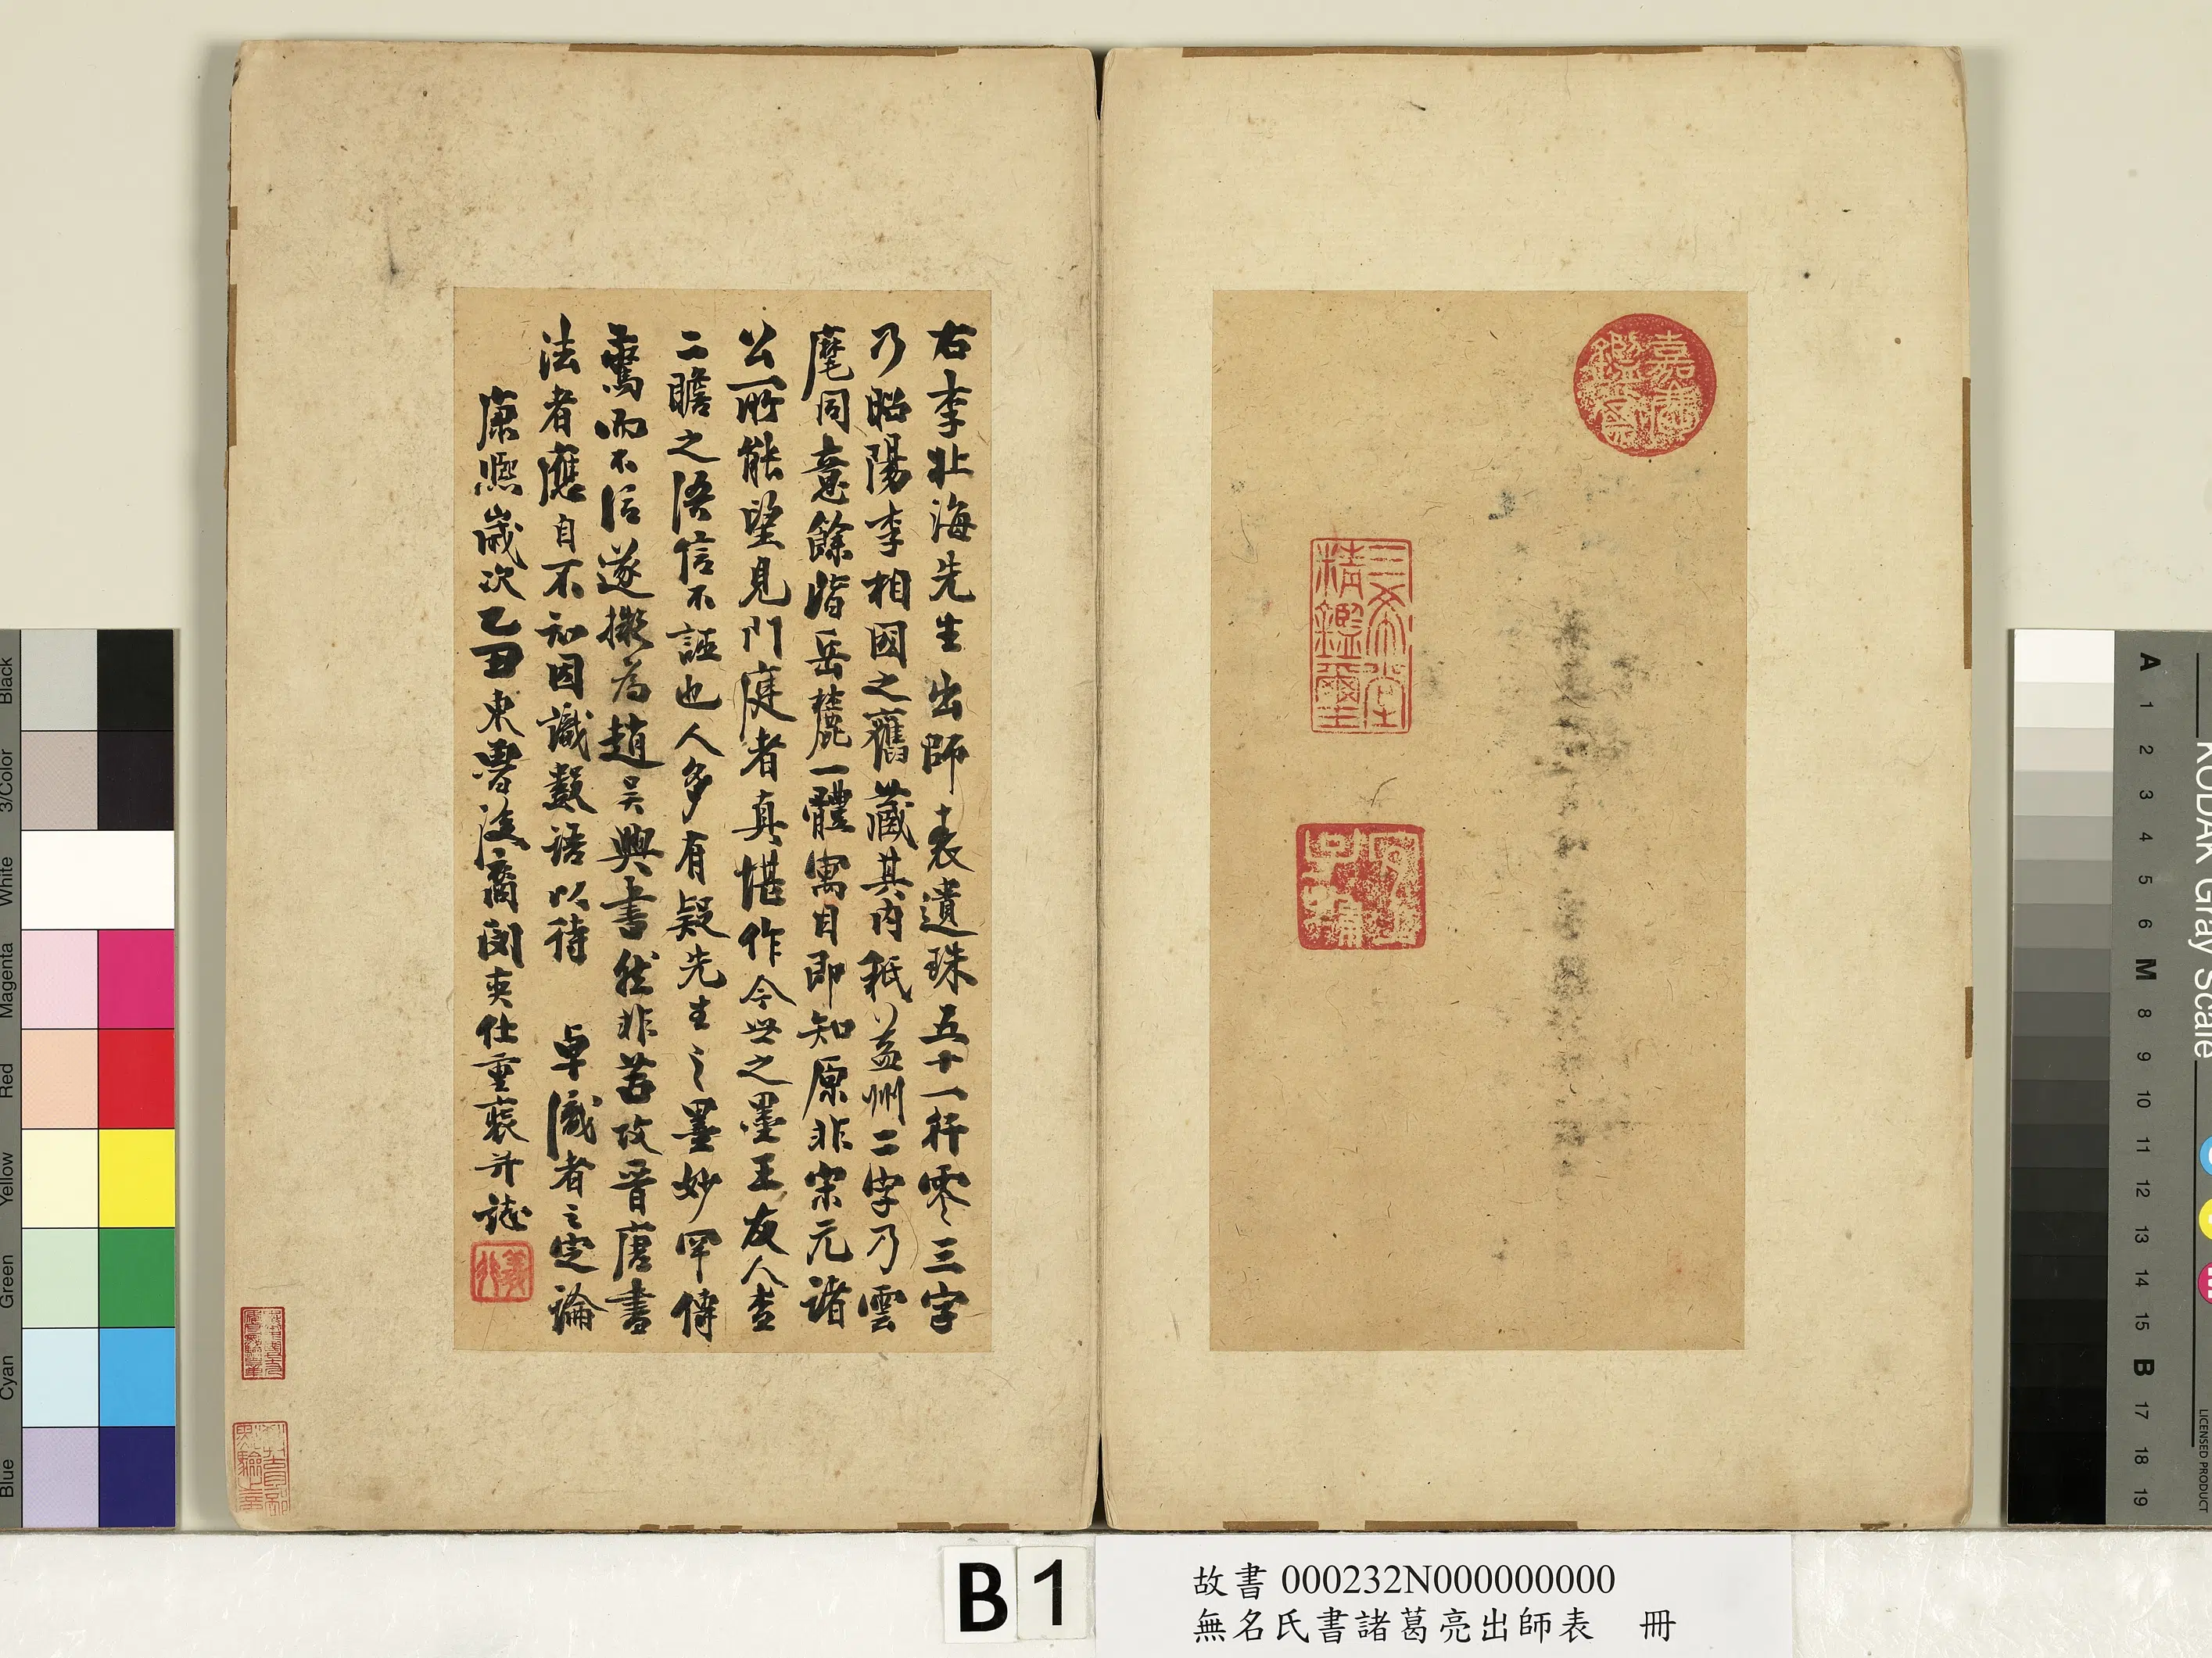 嘉慶
鑑賞
三希堂
精鑑璽
宜
子孫
右李北海先生出師表遺珠五十一行零三字
乃昭陽李相國之舊藏其內秖益州二字乃雲
麾同意餘皆岳麓一體寓目即知原非宋元諸
公所能望見門庭者真堪作今世之墨王友人查
二瞻之語信不誣也人多有疑先生之墨妙罕傳
驚而不信遂擬為趙吳興書然非苦攻晉唐書
法者應自不知因識數語以待 卓識者之定論
康熙歲次乙丑東魯後裔閔奕仕重裝并誌
B1
故書 000232N000000000
無名氏書諸葛亮出師表 冊
KODAK Gray Scale
LICENSED PRODUCT
A 1 2 3 4 5 6 M 8 9 10 11 12 13 14 15 B 17 18 19
Black
3/Color
White
Magenta
Red
Yellow
Green
Cyan
Blue